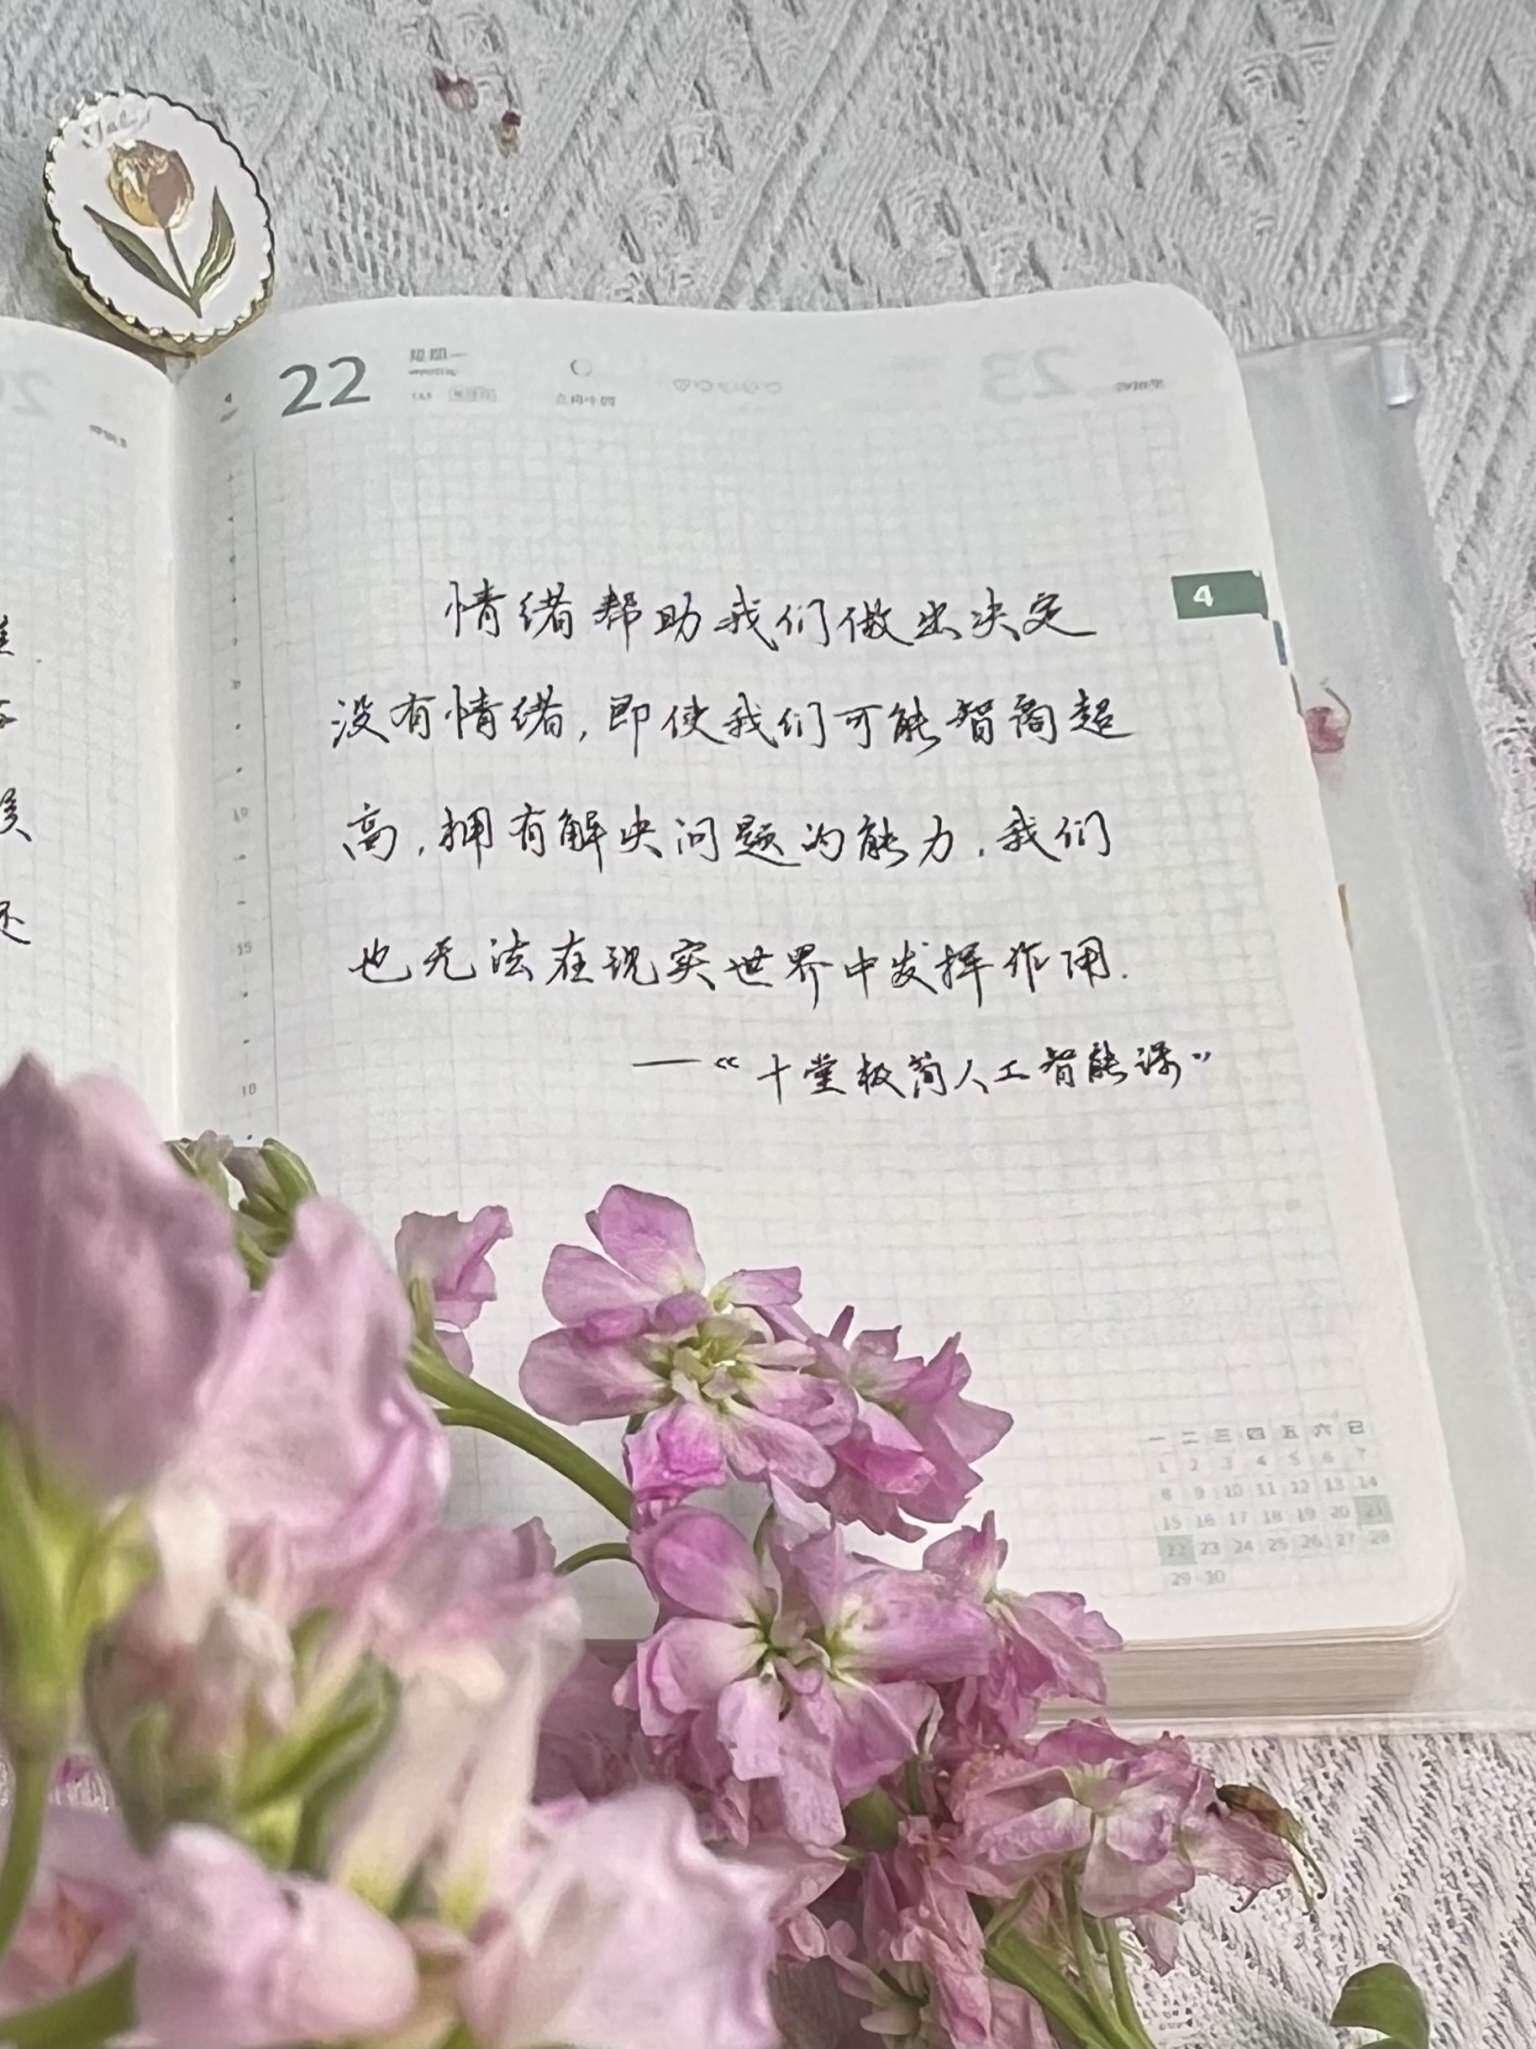 22
星期一
4
情绪帮助我们做出决定
没有情绪,即使我们可能智商超
高,拥有解决问题的能力,我们
也无法在现实世界中发挥作用.
——“十堂极简人工智能课”
一 二 三 四 五 六 日
1 2 3 4 5 6 7
8 9 10 11 12 13 14
15 16 17 18 19 20 21
22 23 24 25 26 27 28
29 30